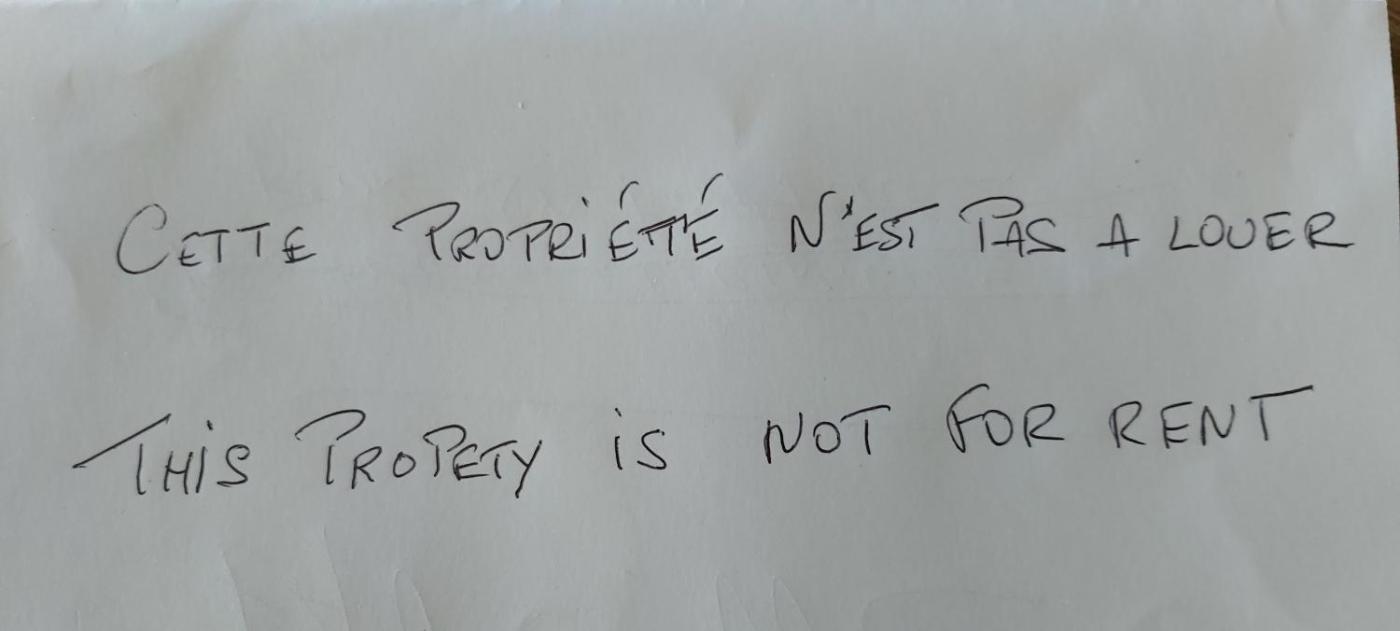 CETTE PROPRiÉTÉ N'EST PAS A LOUER
THiS PROPETY iS NOT FOR RENT